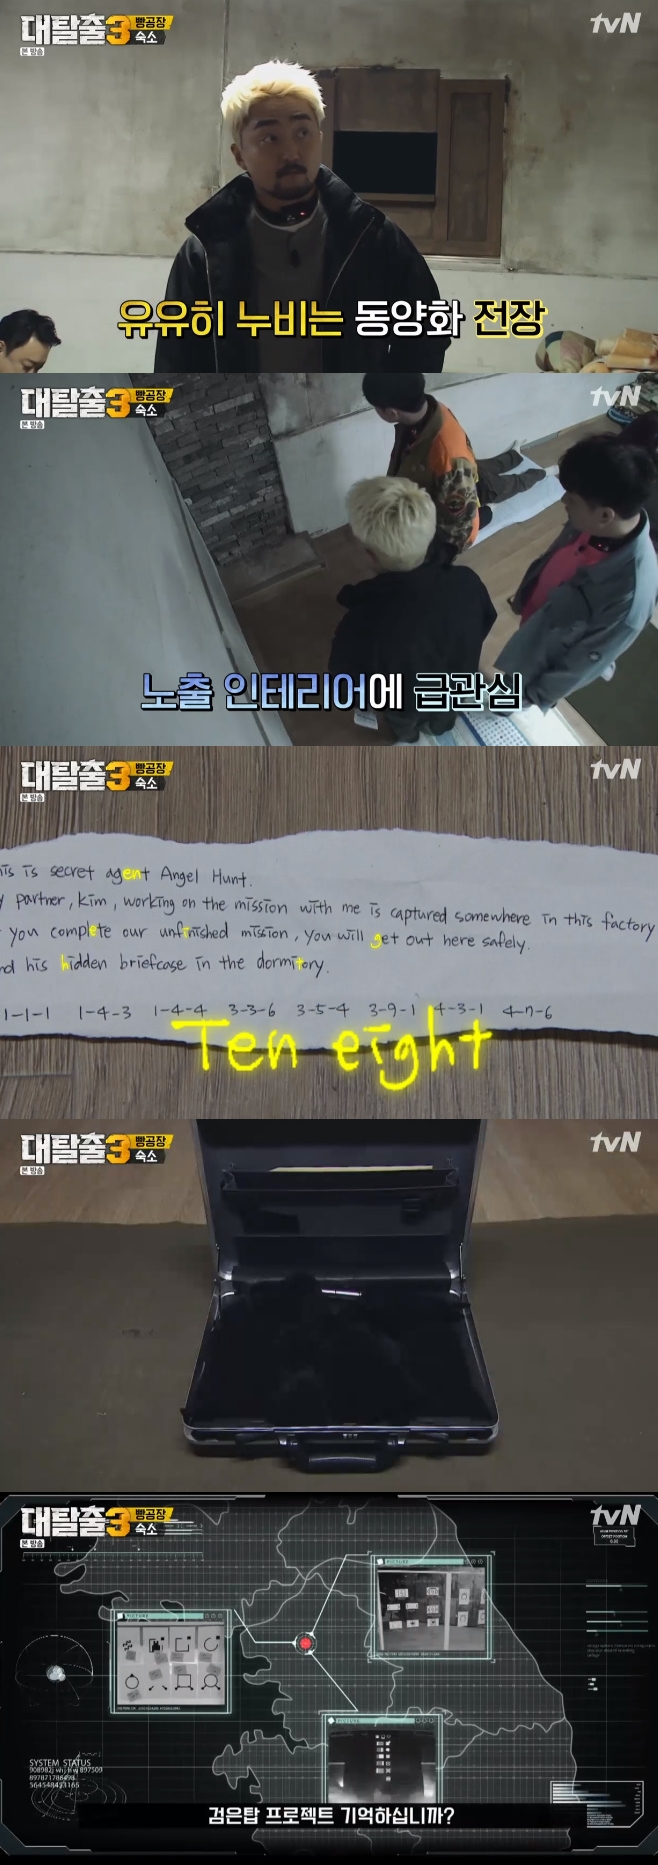 대탈출3 빵공장 숙소
본 방송
tvN
유유히 누비는 동양화 전장
대탈출3 빵공장 숙소
본 방송
tvN
노출 인테리어에 급관심
대탈출3 빵공장 숙소
본 방송
tvN
is is secret agent Angel Hunt.
partner, kim, working on the mission with me is captured somewhere in this factory
you complete our unfinished mission, you will get out here safely.
nd his hidden briefcase in the dormitory.
1-1-1 1-4-3 1-4-4 3-3-6 3-5-4 3-9-1 4-3-1 4-7-6
Ten eight
대탈출3 빵공장 숙소
본 방송
tvN
대탈출3 빵공장 숙소
본 방송
tvN
PICTURE
PICTURE
PICTURE
SYSTEM STATUS
검은탑 프로젝트 기억하십니까?